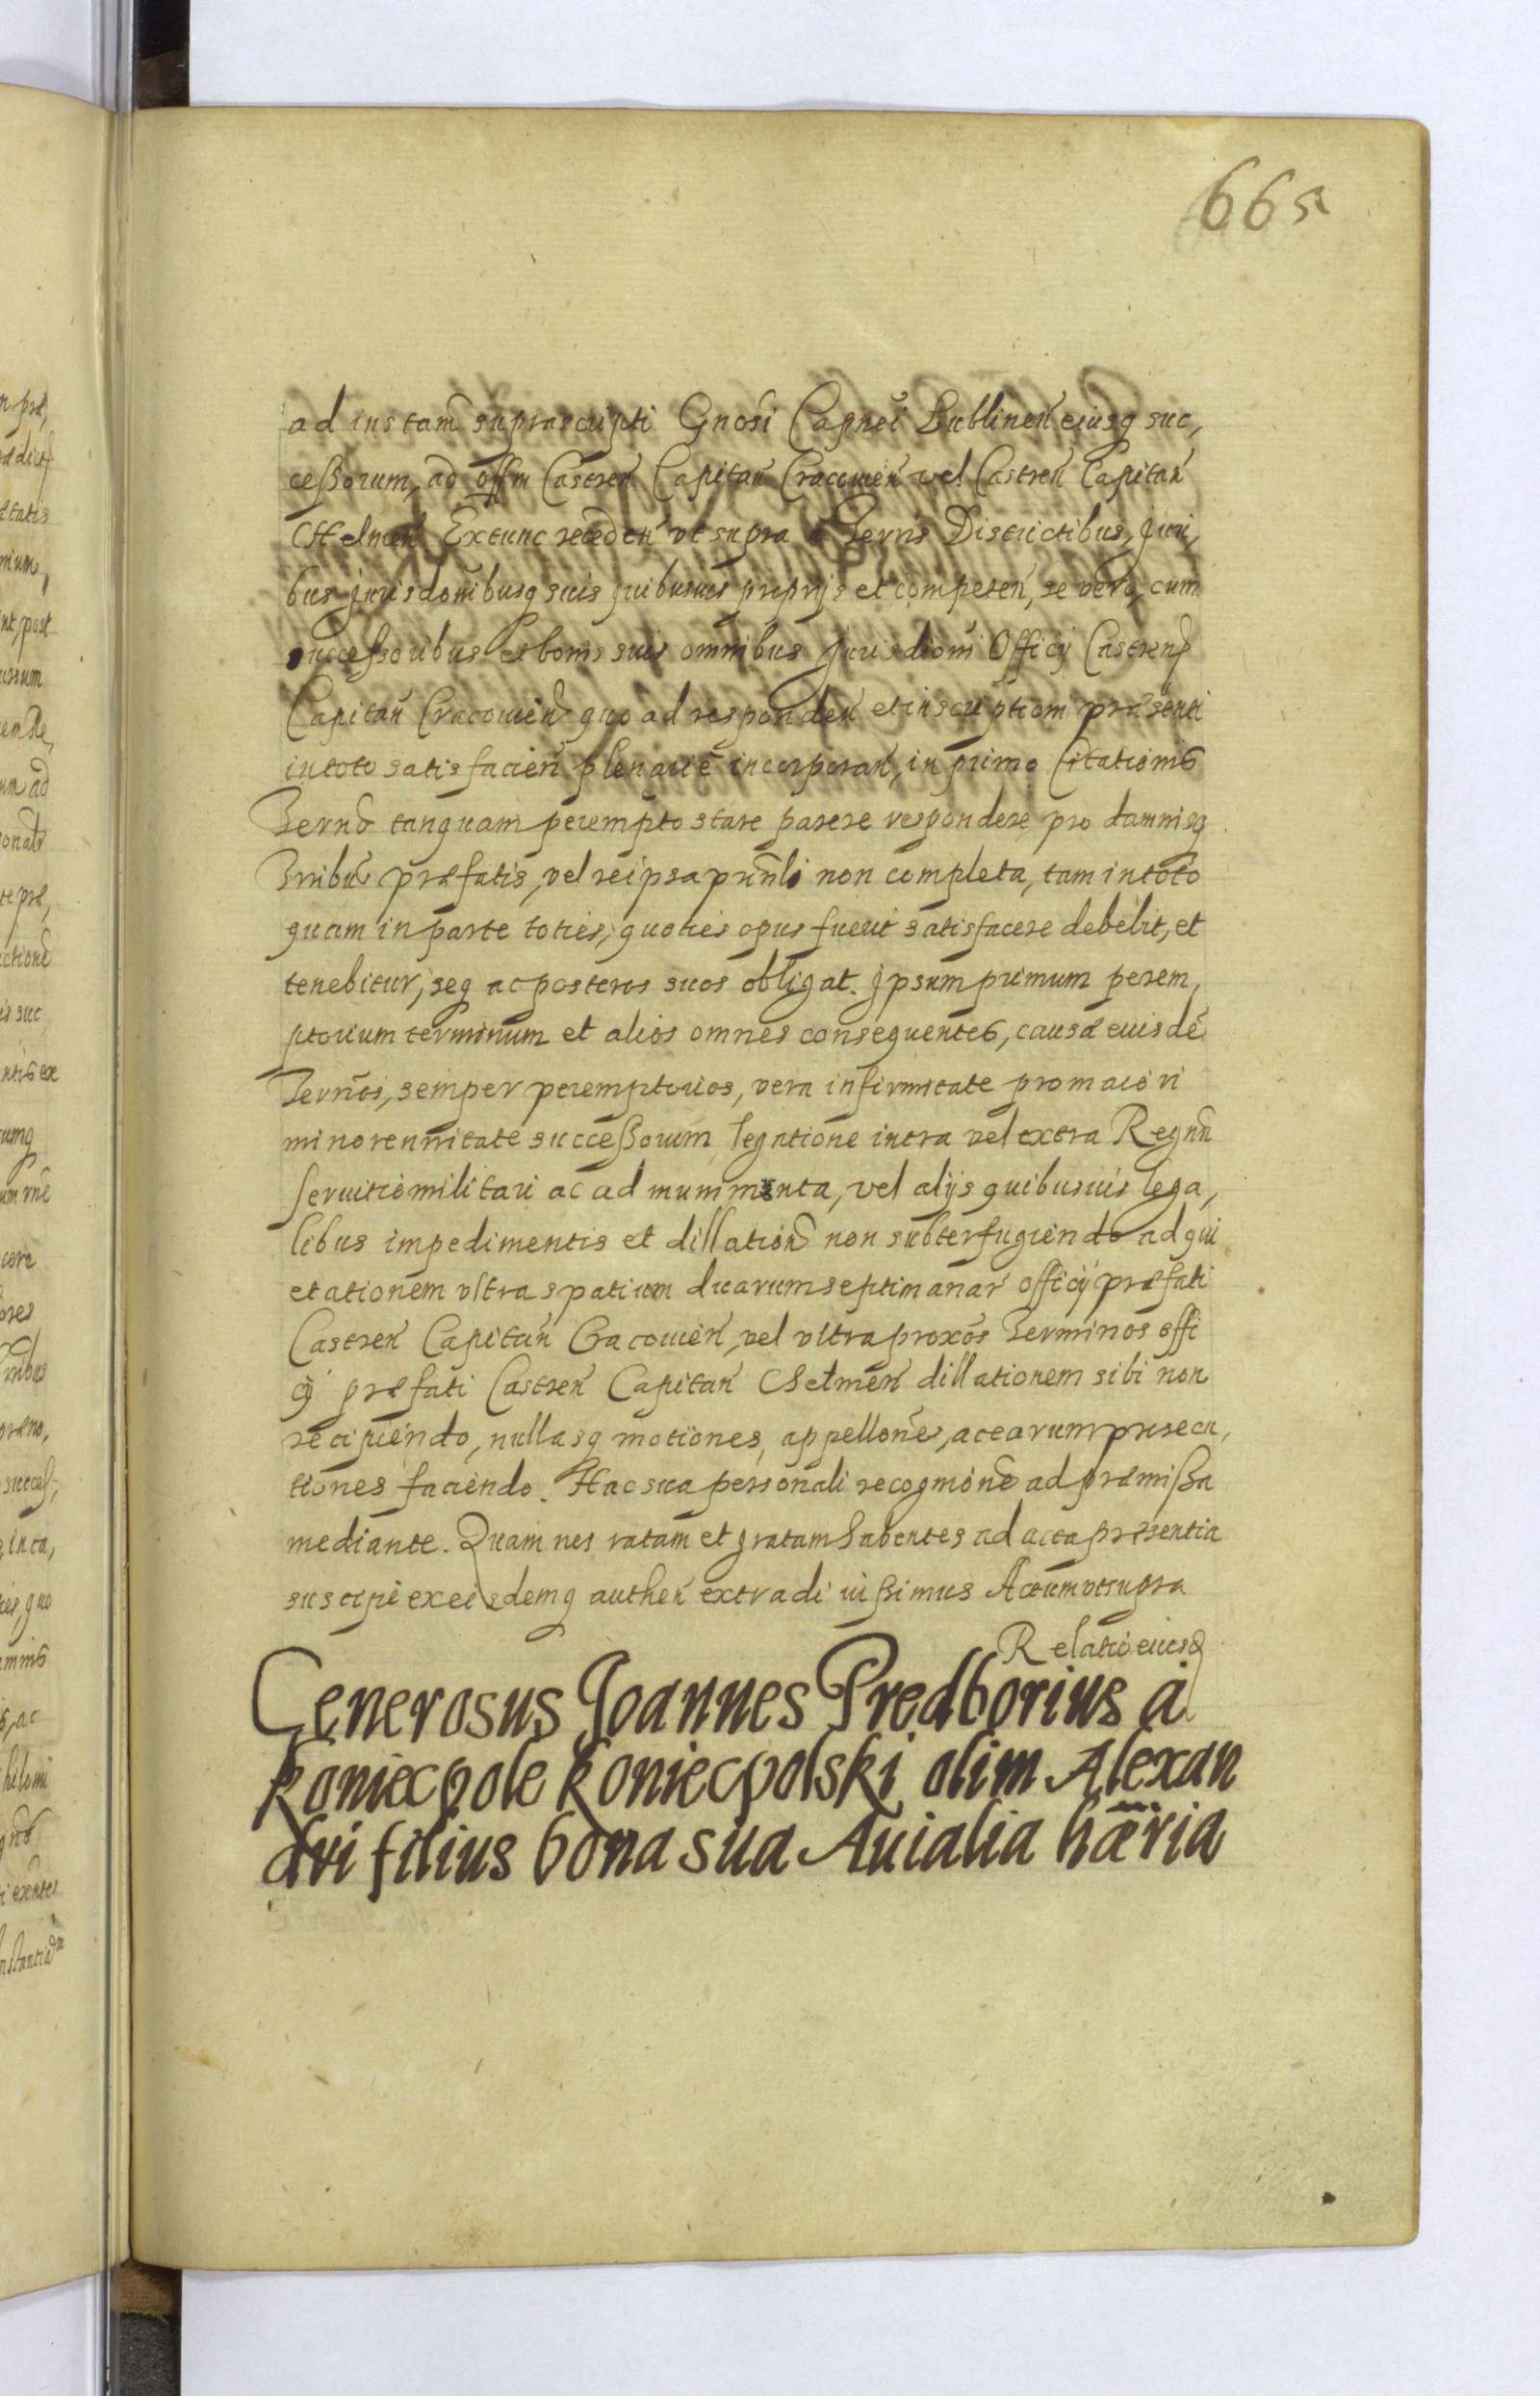 665
ad instam̃ suprascripti Gnosi Capnei Lublinen̄ eiusq suc,
ceßorum, ad offm Castren̄ Capitan̄ Cracouien̄ vel Castren̄ Capitan̄
Chelmen̄ Extunc receden̄ vt supra a Terris Districtibus, Juri,
bus jurisdonibusq suis quibusuis proprijs et competen̄, se vero, cum
succeßoribus et bonis suis omnibus jurisdioni Officij Castren̄
Capitan̄ Cracouien̄ quo ad responden̄ et inscriptioni præsenti
in toto satisfacien̄ plenarie incorporan̄, in primo Citationis
Termō tanquam perempto stare parere respondere pro damnisq
Tribus præfatis, vel re ipsa prinli non completa, tam in toto
quam in parte toties, quoties opus fuerit satisfacere debebit, et
tenebitur, seq ac posteros suos obligat. Ipsum primum perem,
ptorium terminum et alios omnes consequentes, causæ euisdē
Ternos, semper peremptorios, vera infirmitate pro maiori
minorennitate succeßorum legatione intra vel extra Regnū
seruitio militari ac ad munimenta, vel alijs quibusuis lega,
libus impedimentis et dillation̄ non subterfugiendo ad qui
etationem vltra spatium duarum septimanar̄ officij præfati
Castren̄ Capitan̄ Cracouien̄, vel vltra proxos Terminos offi
cij præfati Castren̄ Capitan̄ Chelmen̄ dillationem sibi non
recipiendo, nullasq motiones, appellones, ac earum prosecu,
tiones faciendo. Hac sua personali recognione ad præmißa
mediante. Quam nos ratam et gratam habentes ad acta præsentia
suscipi ex eisdemq authen̄ extradi iußimus Actum vt supra
Relatio eiusd
Generosus Joannes Predborius à
Koniecpole Koniecpolski olim Alexan
dri filius bona sua Auialia hæria